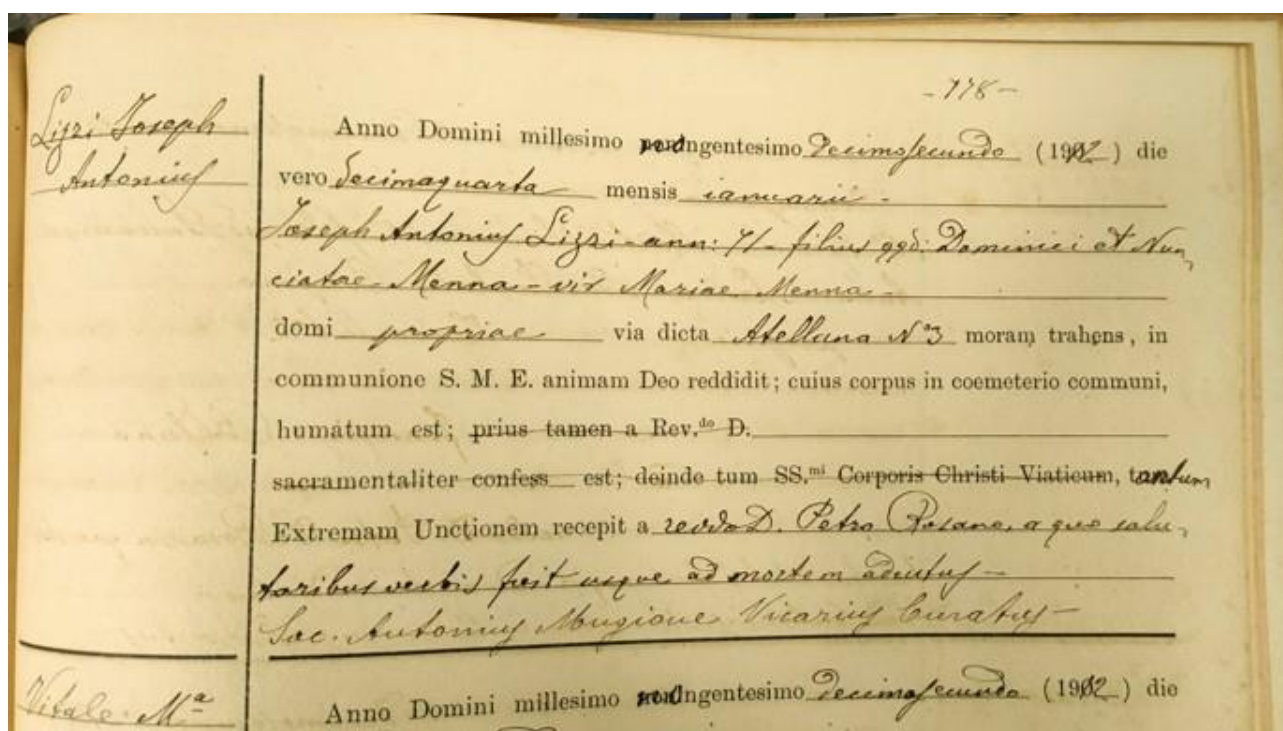 -178-
Lizzi Joseph
Antonius
Anno Domini millesimo nongentesimo Decimosecundo (1912) die
vero decimaquarta mensis ianuarii -
Joseph Antonius Lizzi - ann: 71 - filius qqd: Dominici et Nun,
ciatae Menna - vir Mariae Menna
domi propriae via dicta Atellana N° 3 moram trahens, in
communione S. M. E. animam Deo reddidit; cuius corpus in coemeterio communi,
humatum est; prius tamen a Rev.do D.
sacramentaliter confess est; deinde tum SS.mi Corporis Christi Viaticum, tantum
Extremam Unctionem recepit a revdo D. Petro Rosano, a quo salu,
taribus verbis fuit usque ad mortem adiutus -
Sac. Antonius Mugione Vicarius Curatus -
Vitale Mª
Anno Domini millesimo nongentesimo Decimosecundo (1912) die